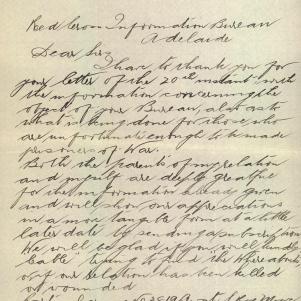 Red Cross Information Bureau
Adelaide
Dear Sirs
I have to thank you for
your letter of the 20th instant with
the information concerning the
object of your Bureau, also as to
what is being done for those who
are unfortunate enough to be made
prisoners of War.
Both the parents of my relation
and myself are deeply grateful
for the information already given
and will show our appreciations
in a more tangible form at a little
later date by sending a subscription
We will be glad if you will kindly
"cable" trying to find the whereabouts
of if our relation has been killed
or wounded